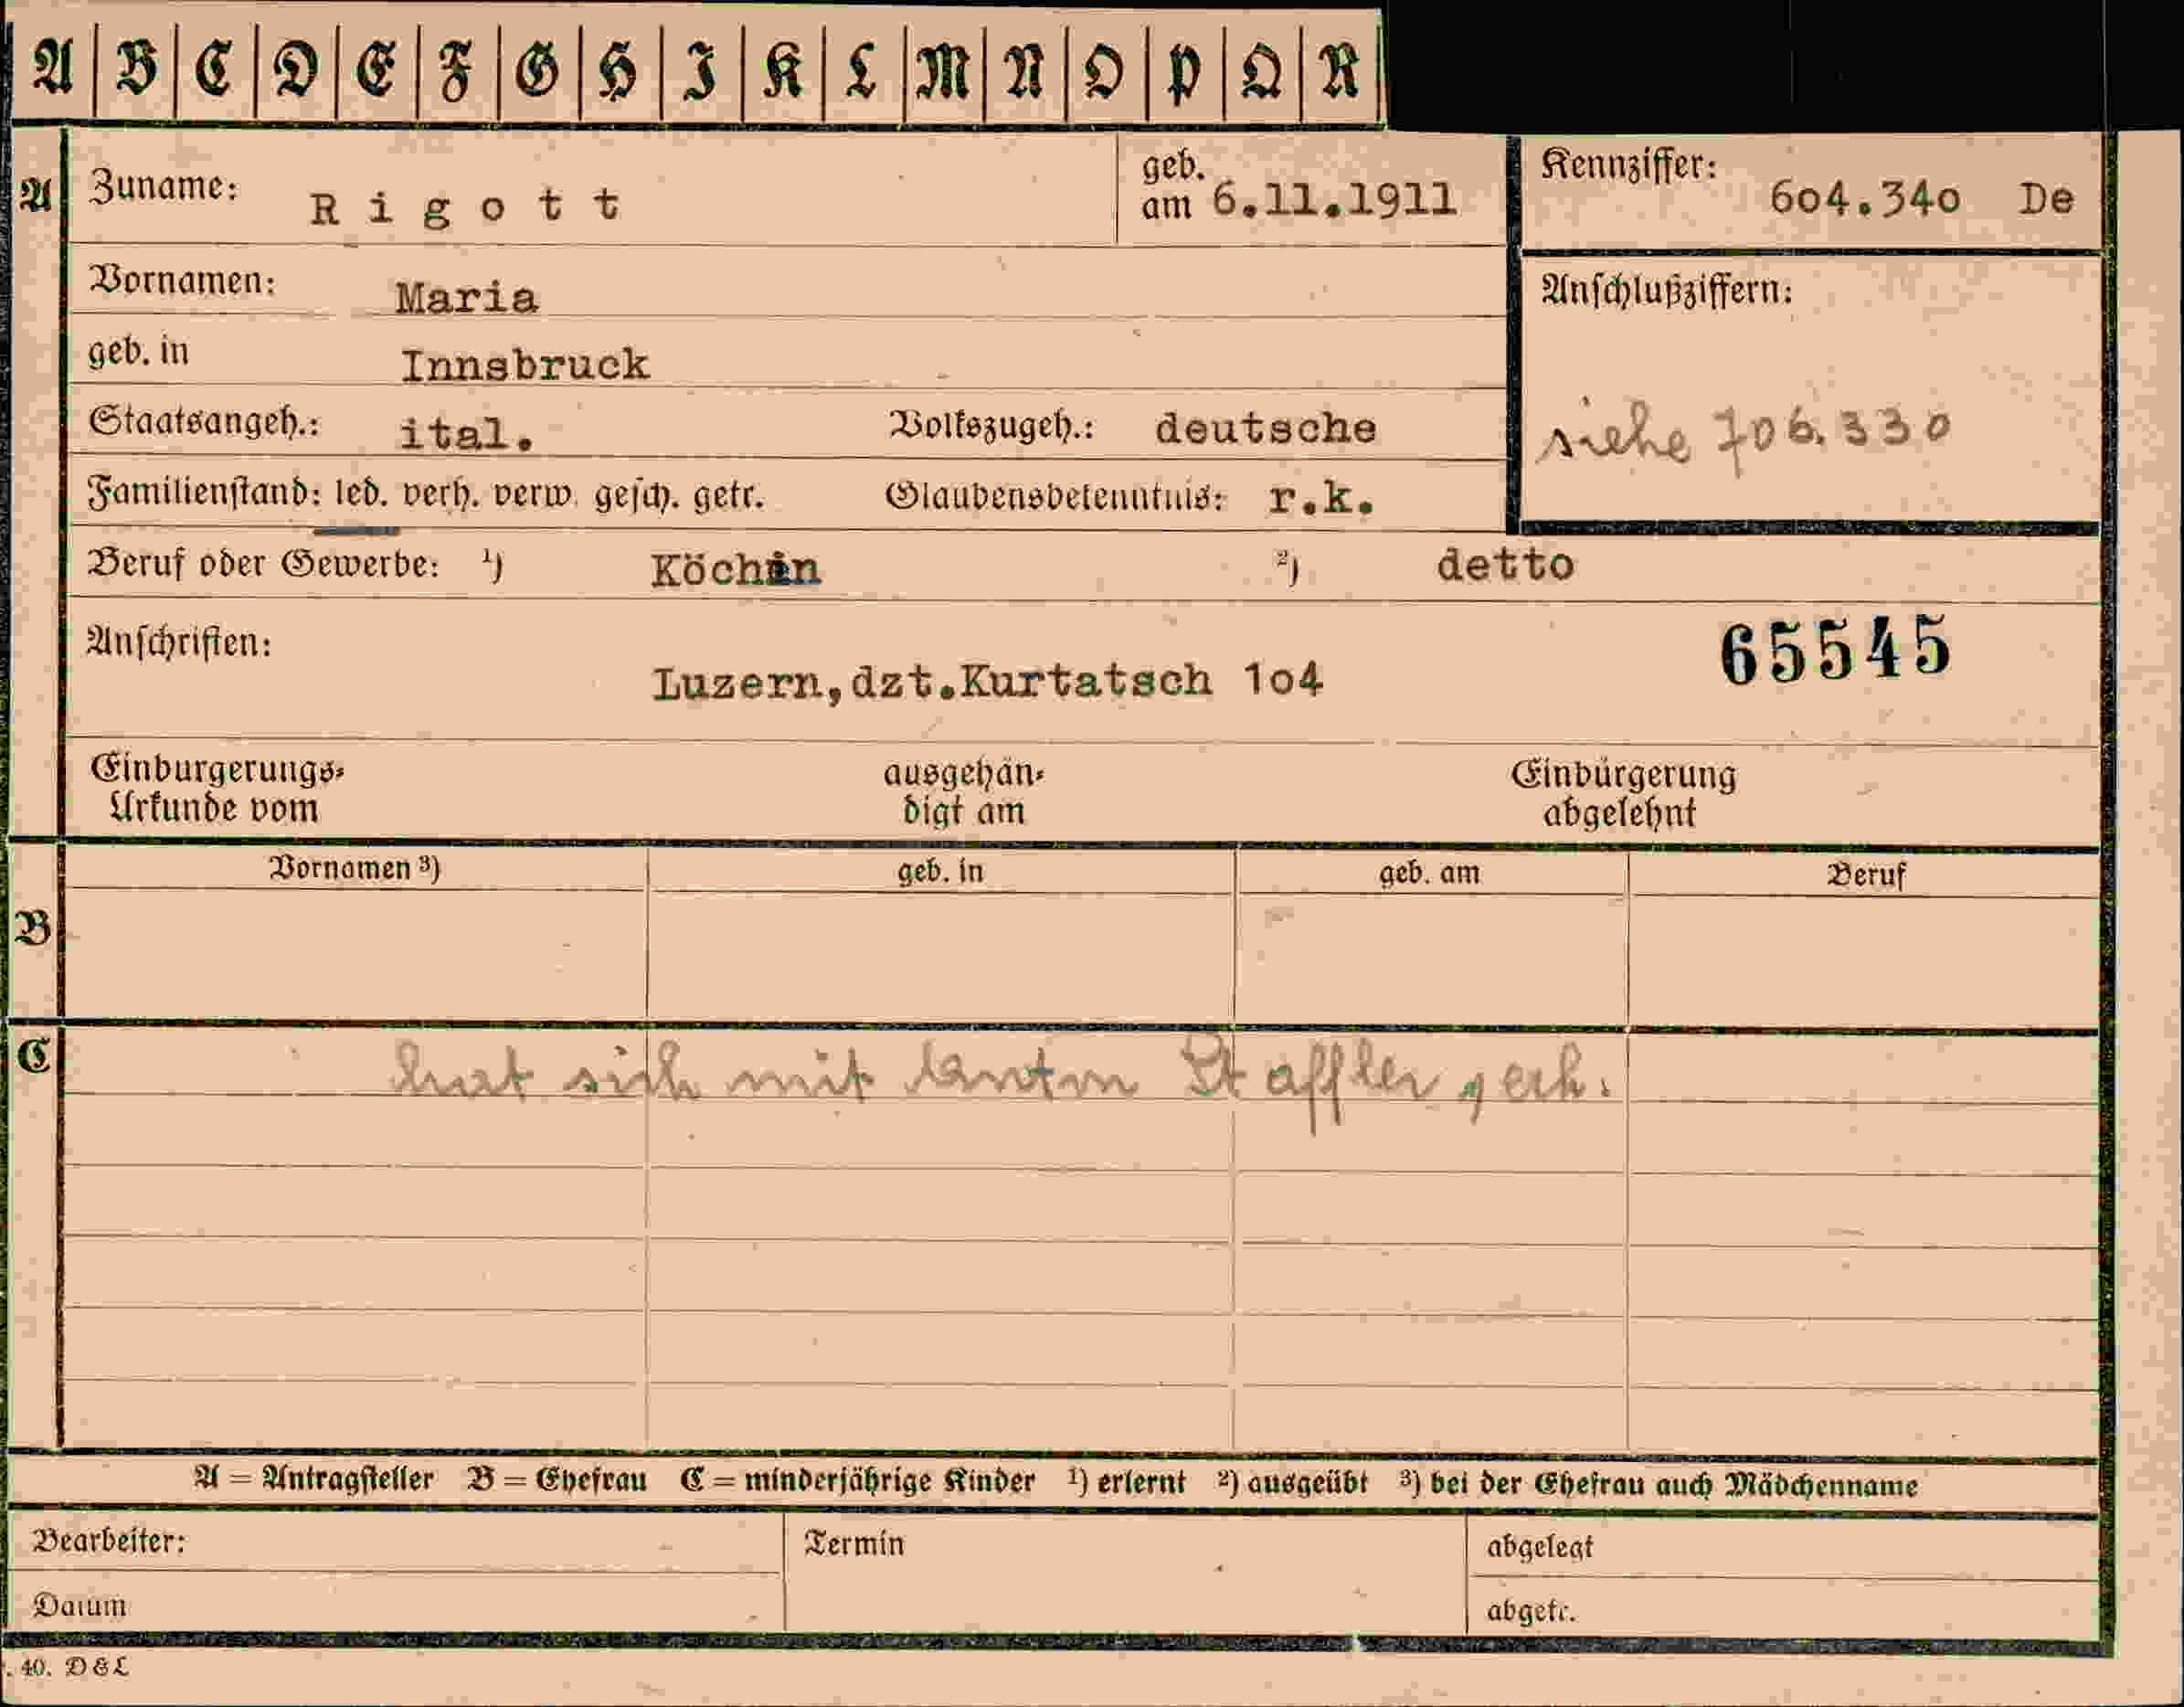 A B C D E F G H I K L M N O P Q R
A Zuname: Rigott geb. am 6.11.1911 Kennziffer: 604.340 De
Vornamen: Maria Anschlußziffern:
geb. in Innsbruck
Staatsangeh.: ital. Volkszugeh.: deutsche siehe 706.330
Familienstand: led. verh. verw. gesch. getr. Glaubensbekenntnis: r.k.
Beruf oder Gewerbe: 1) Köchin 2) detto
Anschriften: 65545
Luzern,dzt.Kurtatsch 1o4
Einbürgerungs-
Urkunde vom
ausgehän-
digt am
Einbürgerung
abgelehnt
B Vornamen 3) geb. in geb. am Beruf
C hat sich mit Staffler
A = Antragsteller B = Ehefrau C = minderjährige Kinder 1) erlernt 2) ausgeübt 3) bei der Ehefrau auch Mädchenname
Bearbeiter: Termin abgelegt
Datum abgetr.
. 40. D & L